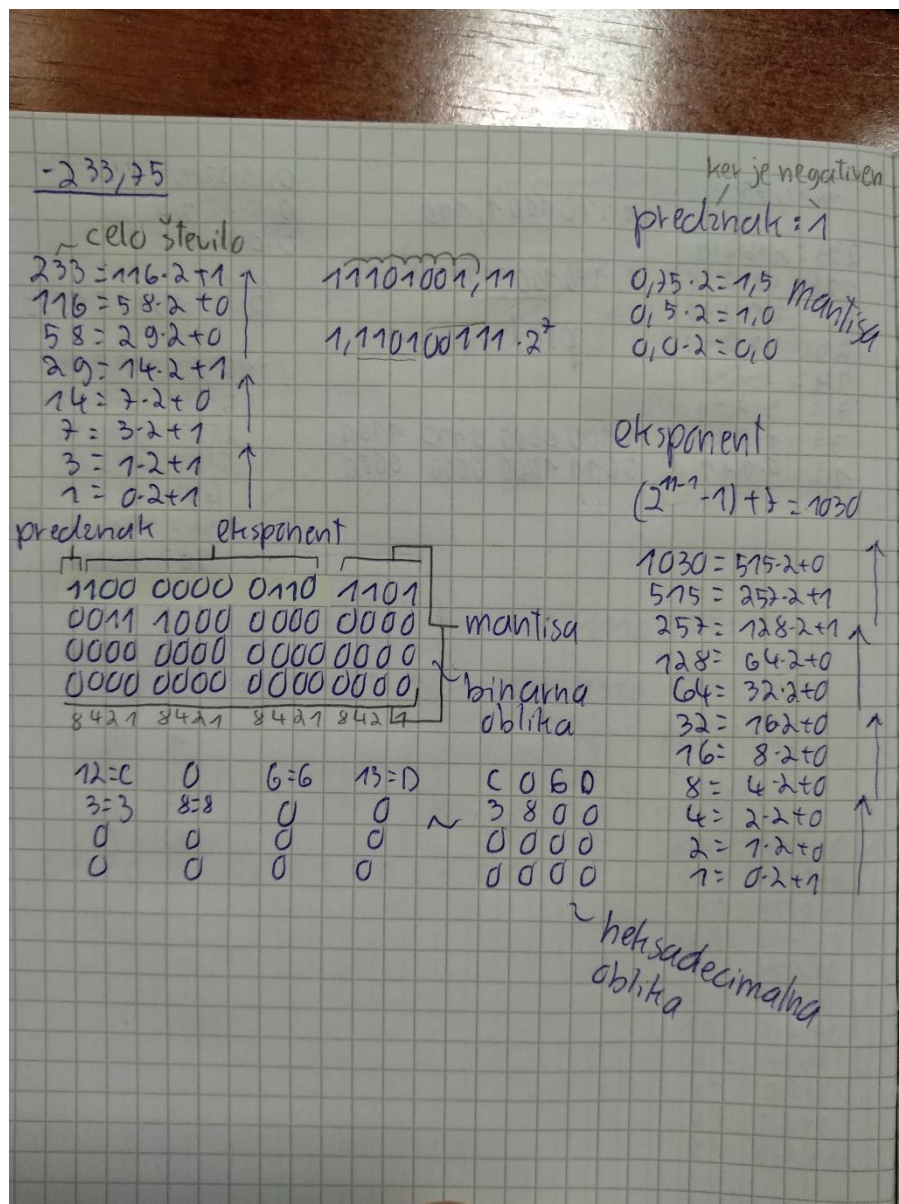 -233,75
ker je negativen
predznak: 1
~ celo število
233 = 116·2+1
116 = 58·2+0
58 = 29·2+0
29 = 14·2+1
14 = 7·2+0
7 = 3·2+1
3 = 1·2+1
1 = 0·2+1
11101001,11
1,110100111·2^7
0,75·2=1,5
0,5·2=1,0
0,0·2=0,0
mantisa
eksponent
(2^11-1 -1)+7=1030
1030 = 515·2+0
515 = 257·2+1
257 = 128·2+1
128 = 64·2+0
64 = 32·2+0
32 = 16·2+0
16 = 8·2+0
8 = 4·2+0
4 = 2·2+0
2 = 1·2+0
1 = 0·2+1
predznak eksponent
1100 0000 0110 1101
0011 1000 0000 0000
0000 0000 0000 0000
0000 0000 0000 0000
8421 8421 8421 8421
mantisa
~ binarna
oblika
12=C 0 6=6 13=D
3=3 8=8 0 0
0 0 0 0
0 0 0 0
~
C 0 6 D
3 8 0 0
0 0 0 0
0 0 0 0
~ heksadecimalna
oblika